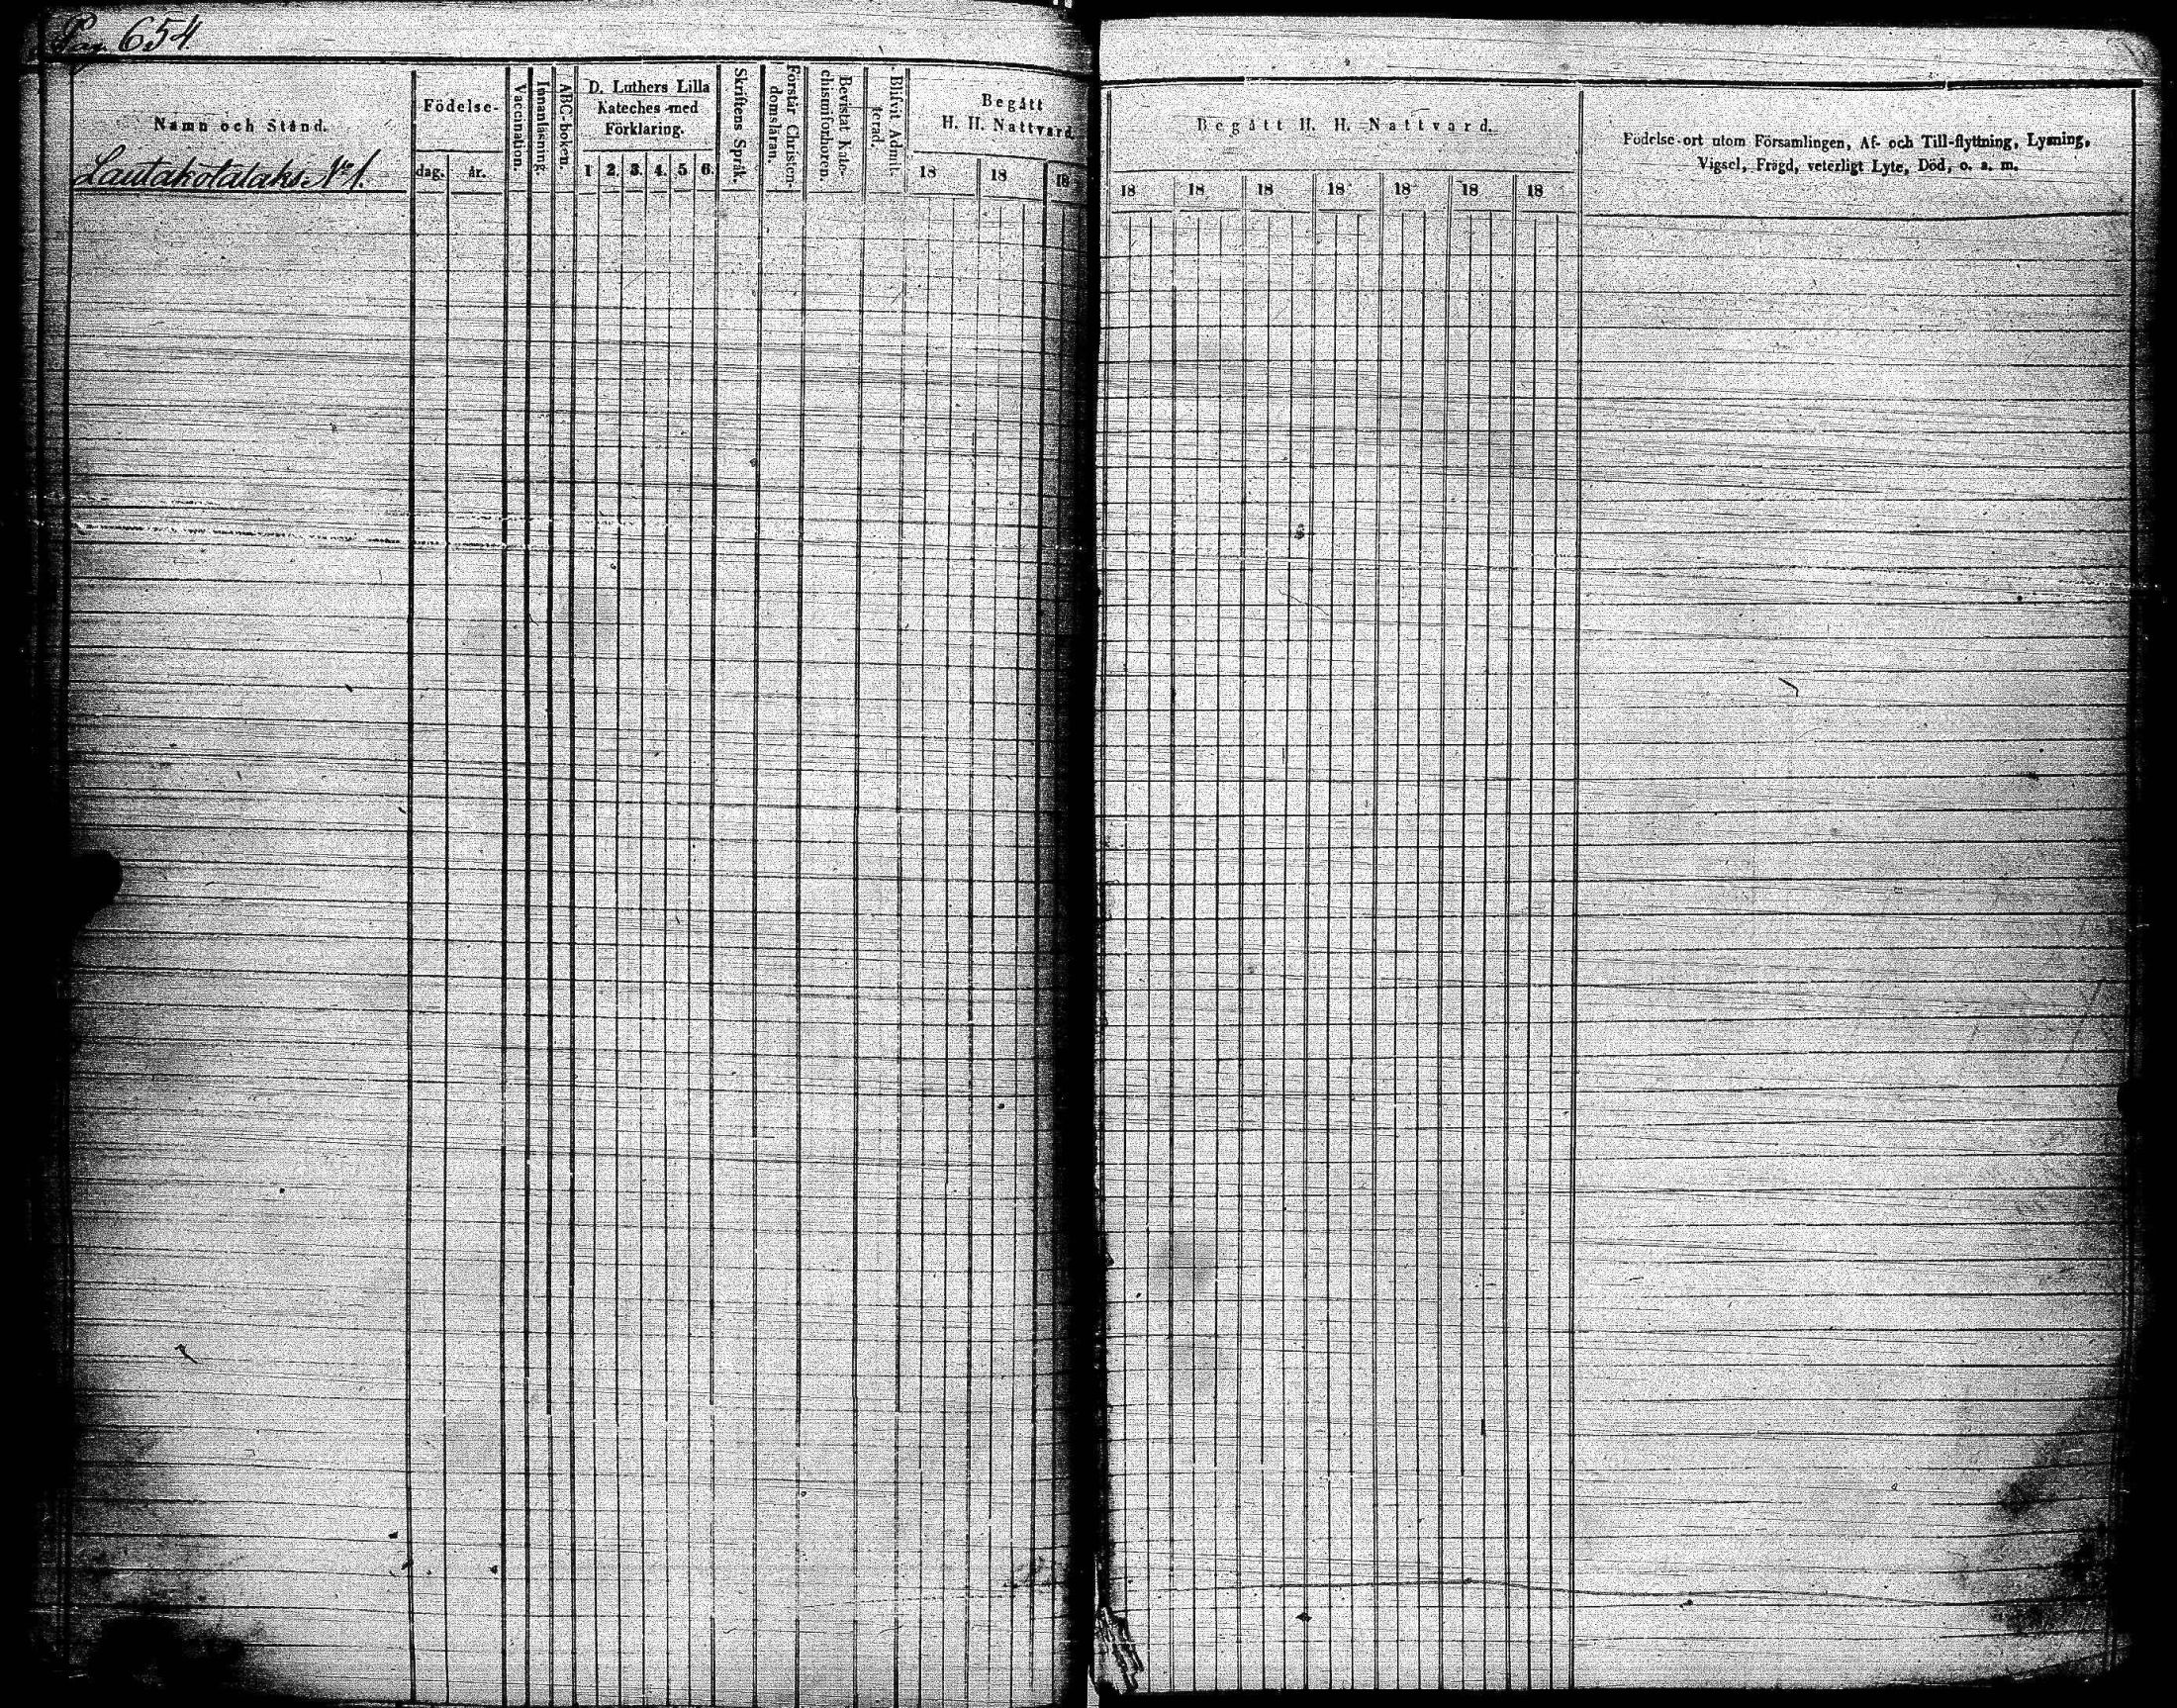 Pag. 654
Namn och Stånd.
Lautakotalaks. No 1.
Födelse-
dag.
år.
Vaccination.
Innanläsning.
ABC-boken.
D. Luthers Lilla
Kateches med
Förklaring.
1 2. 3. 4. 5 6.
Skriftens Språk.
Förstår Christen-
domsläran.
Bevistat Kate-
chismiförhören.
Blifvit Admit-
terad.
Begått
H. H. Nattvard.
18 18 18
Begått H. H. Nattvard.
18 18 18 18 18 18 18
Födelse-ort utom Församlingen, Af- och Till-flyttning, Lysning,
Vigsel, Frägd, veterligt Lyte, Död, o. s. m.